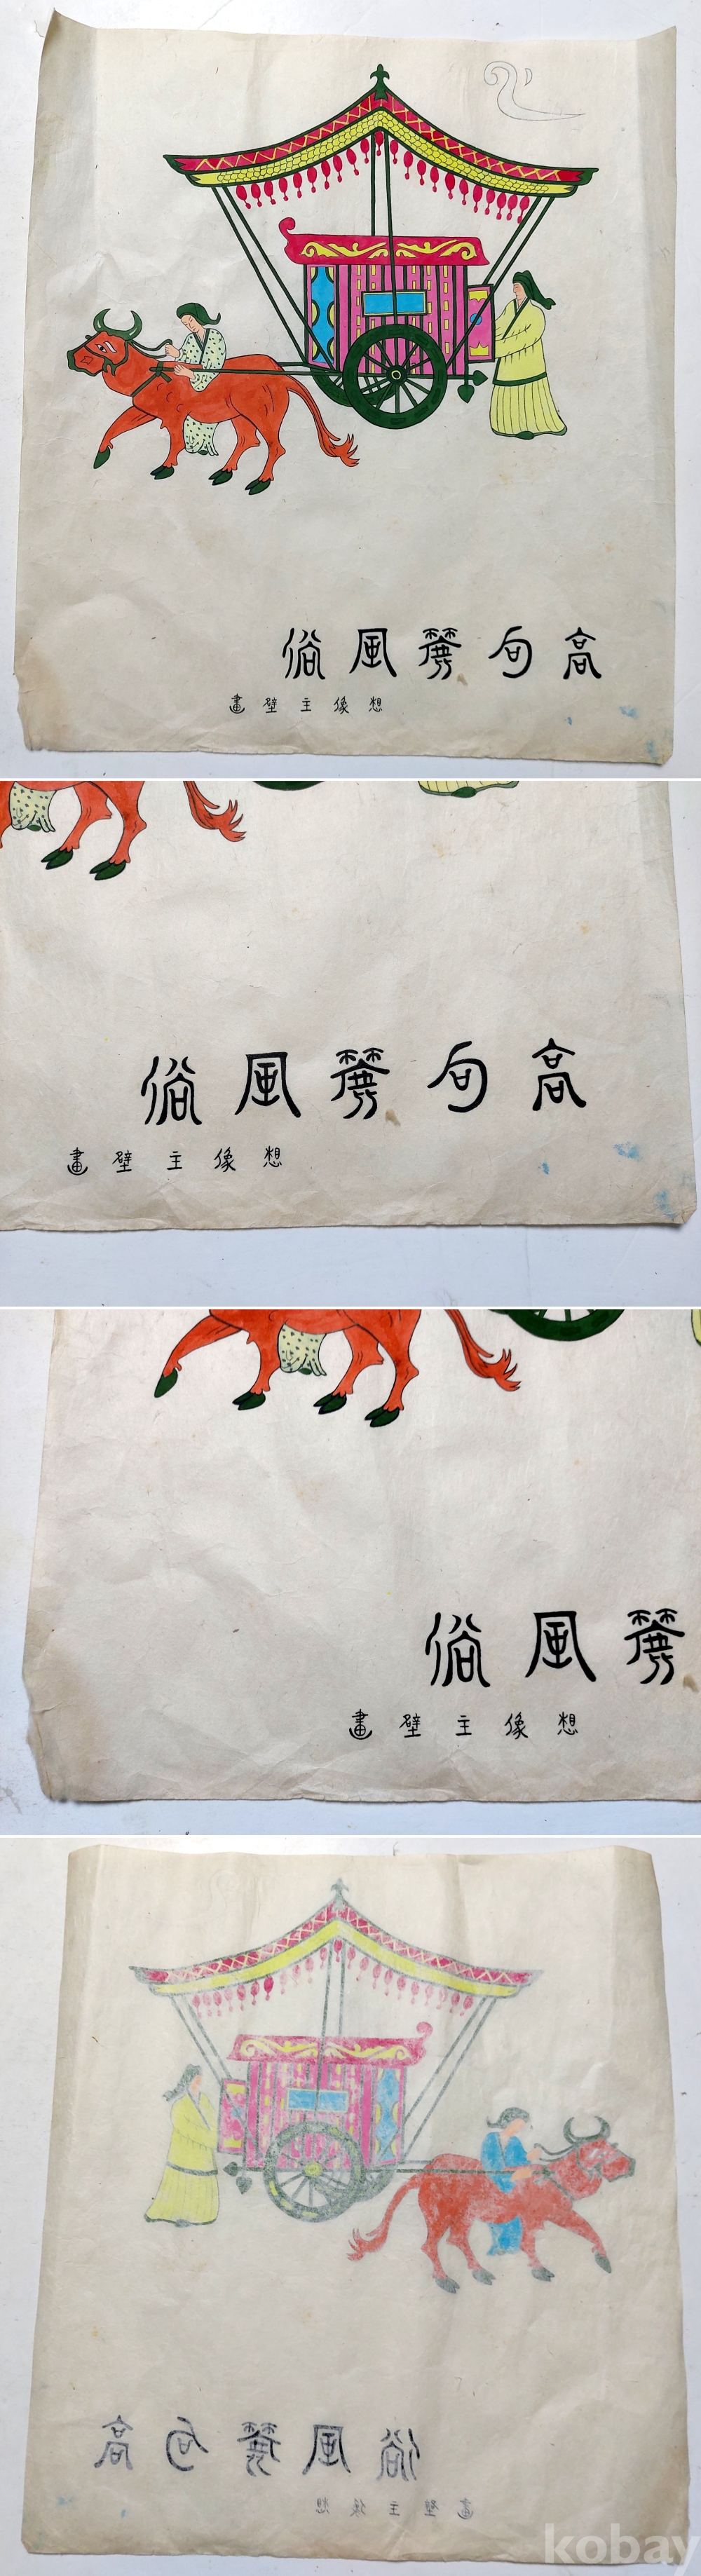 高句麗風俗
想像主壁畫
高句麗風俗
想像主壁畫
麗風俗
想像主壁畫
高句麗風俗
想像主壁畫
kobay